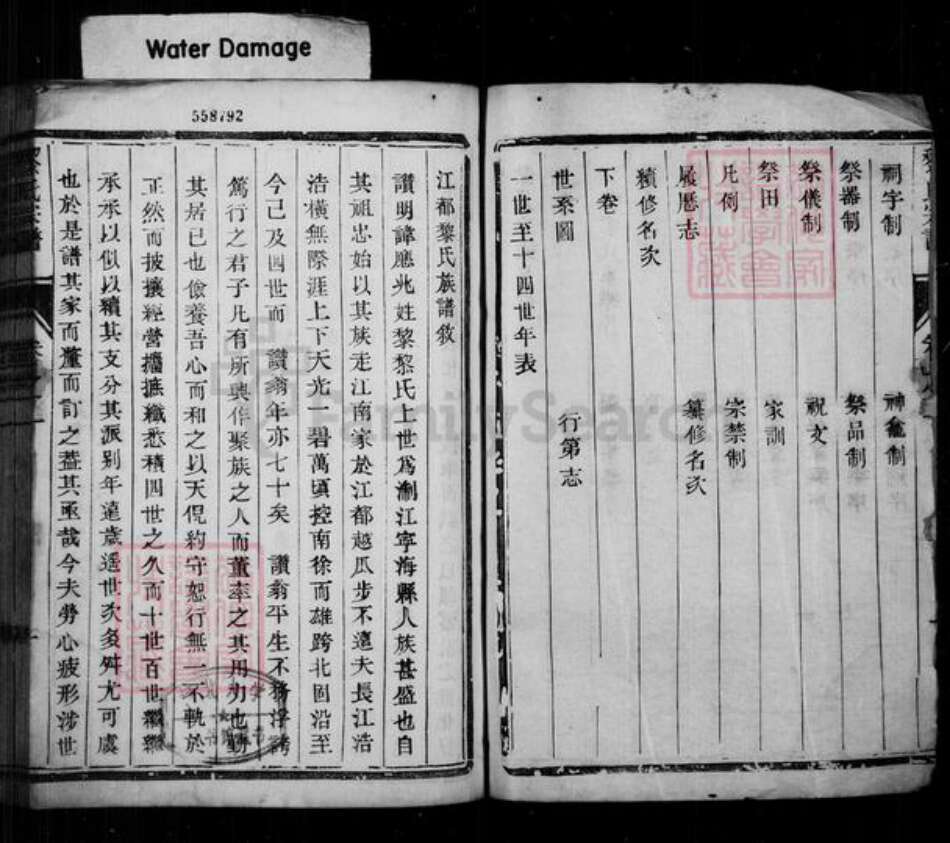 Water Damage
558792
祠宇制 神龕制
祭器制 祭品制
祭儀制 祝文
祭田 家訓
凡例 宗禁制
履歷志 纂修名次
續修名次
下卷
世系圖 行第志
一世至十四世年表
江都黎氏族譜敘
讚明諱應兆姓黎黎氏上世爲浙江寧海縣人族甚盛也自
其祖忠始以其族走江南家於江都越瓜步不遠夫長江浩
浩橫無際涯上下天光一碧萬頃控南徐而雄跨北固沿至
今已及四世而 讚翁年亦七十矣 讚翁平生不務浮誇
篤行之君子凡有所興作聚族之人而董率之其用力也勤
其居已也儉養吾心而和之以天倪約守恕行無一不軌於
正然而披攘經營擂摭纖悉積四世之久而十世百世繼繼
承承以似以續其支分其派別年遠歲遙世次多舛尤可虞
也於是譜其家而董而訂之葢其亟哉今夫勞心疲形涉世
FamilySearch